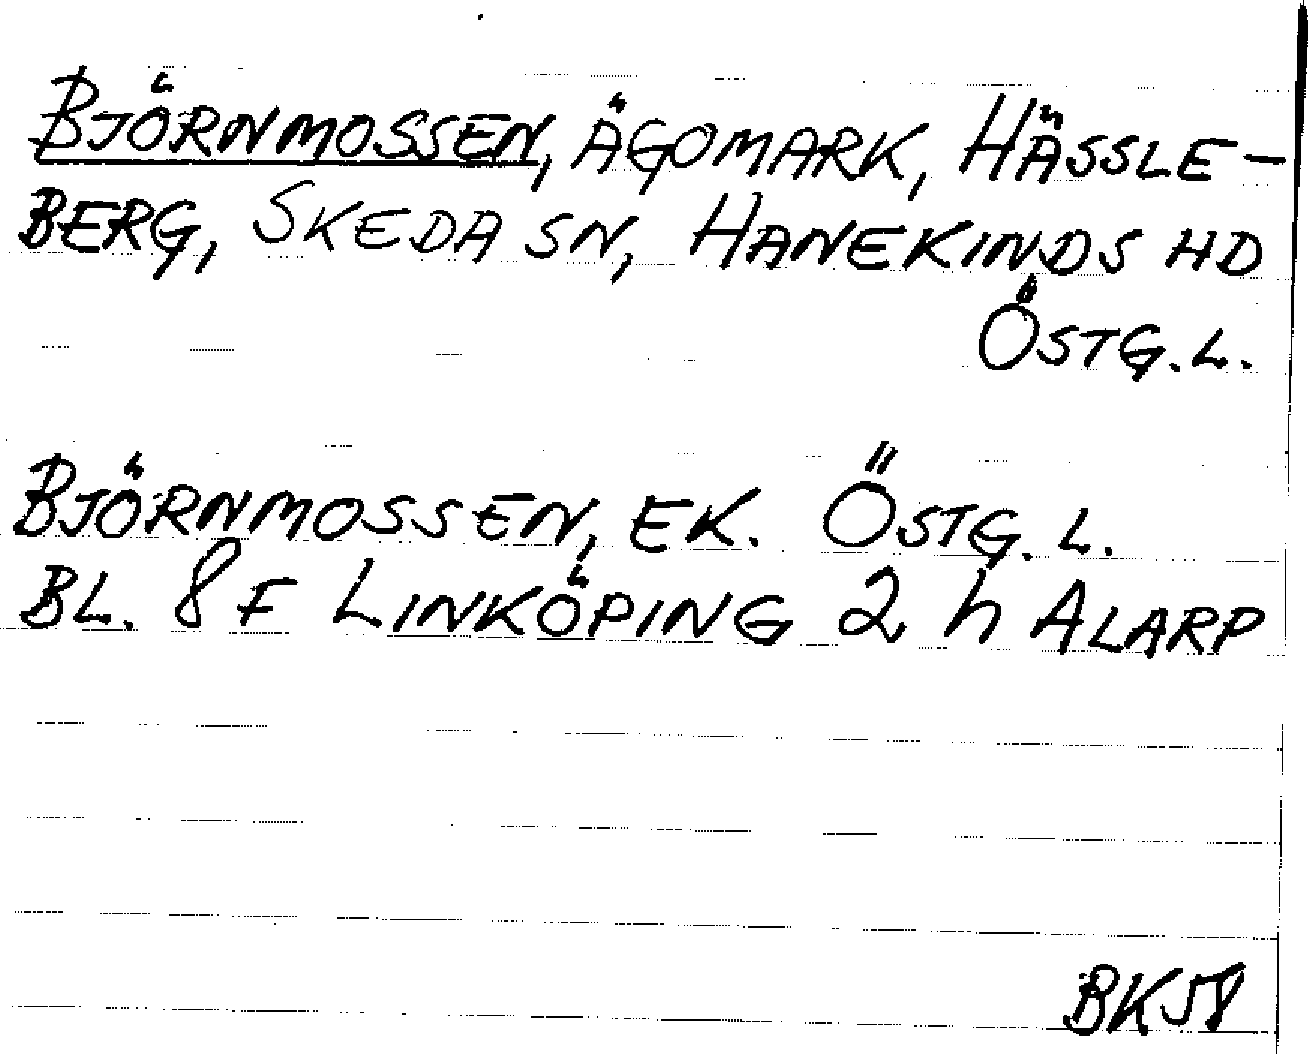 BJÖRNMOSSEN, ÄGOMARK, HÄSSLE-
BERG, SKEDA SN, HANEKINDS HD
ÖSTG.L.
BJÖRNMOSSEN, EK. ÖSTG.L.
BL. 8F LINKÖPING 2 h ALARP